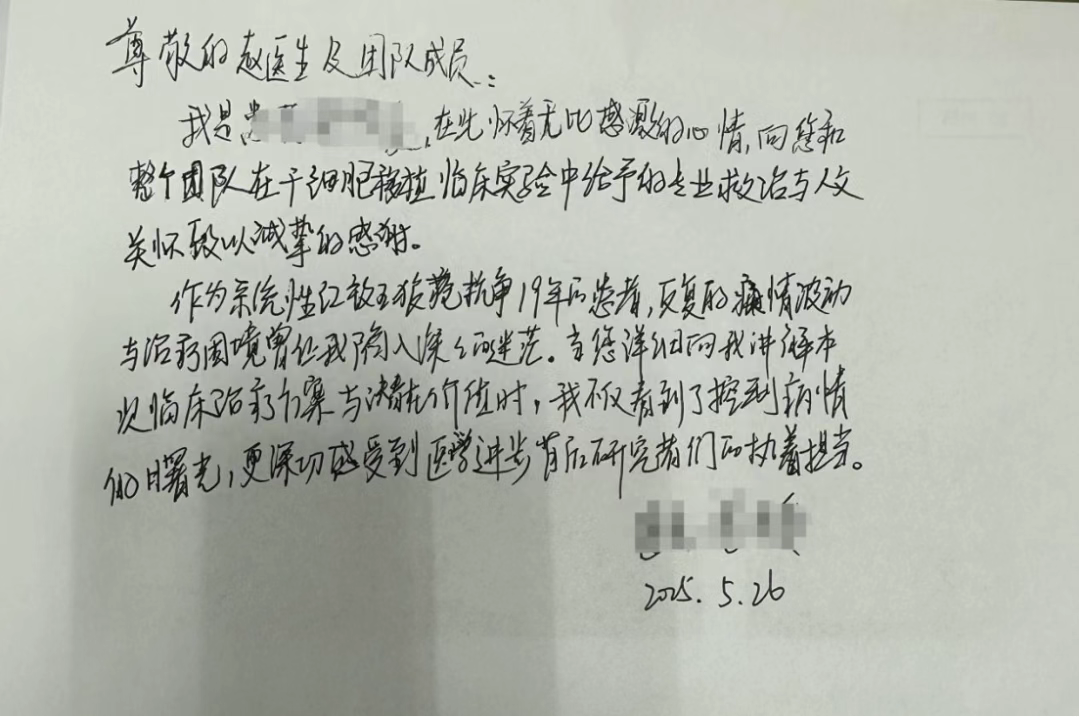 尊敬的赵医生及团队成员：
我是患，在此怀着无比感激的心情，向您和
整个团队在干细胞移植临床实验中给予的专业救治与人文
关怀致以诚挚的感谢。
作为系统性红斑狼疮抗争19年的患者，反复的病情波动
与治疗困境曾让我陷入深深的迷茫。当您详细向我讲解本
次临床治疗方案与潜在价值时，我不仅看到了控制病情
的曙光，更深切感受到医学进步背后研究者们的执着担当。
2025.5.26